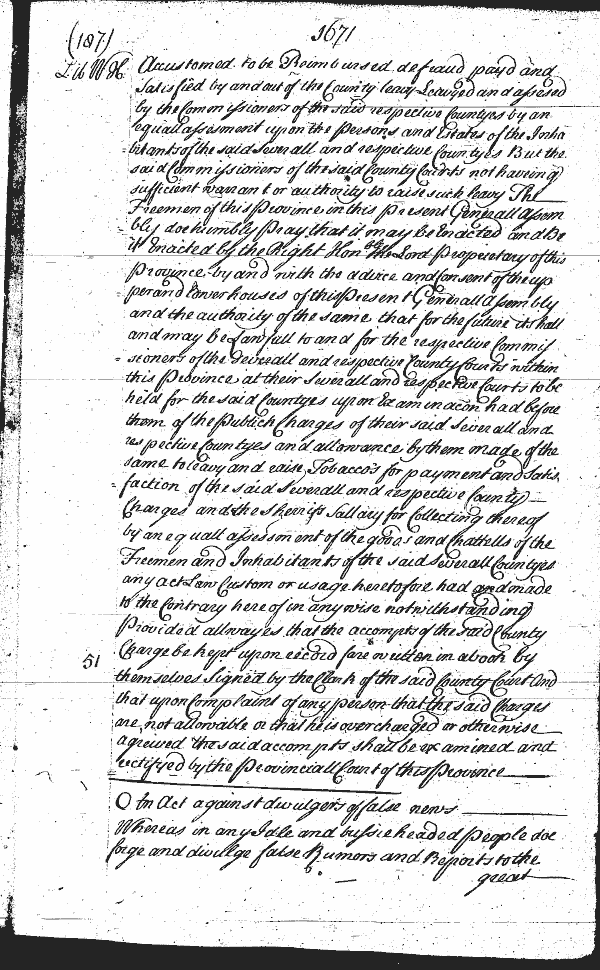 (187)
1671
Lib W H
Accustomed to be Reimbursed defraud payd and
Satisfied by and out of the County leavy Leavyed and assessed
by the Commissioners of the said respective Countyes by an
equall assisment upon the Persons and Estates of the Inha
bitants of the said severall and respective Countyes But the
said Commissioners of the said County Courts not haveing
sufficient warrant or authority to raise such leavy The
Freemen of this Province in this Present Generall Assem
bly doe humbly Pray that it may be Enacted and Be
it Enacted by the Right Honble the Lord Proprietary of this
Province by and with the advice and consent of the up
per and Lower houses of this Present Generall Assembly
and the authority of the same that for the future it shall
and may be Lawfull to and for the respective Commis
sioners of the severall and respective County Courts within
this Province at their severall and respective Courts to be
held for the said Countyes upon Examinacon had before
them of the Publick Charges of their said severall and
respective Countyes and allowance by them made of the
same to leavy and raise Tobaccos for payment and Satis
faction of the said severall and respective County
Charges and the Sheriffs Sallary for Collecting thereof
by an equall assessment of the goods and chattells of the
Freemen and Inhabitants of the said severall Countyes
any act Law Custom or usage heretofore had and made
to the Contrary hereof in any wise notwithstanding
Provided allwayes that the accompts of the said County
51 Charge be kept upon record fare written in a book by
themselves Signed by the Clerk of the said County Court And
that upon Complaint of any person that the said Charges
are not allowable or that he is overcharged or otherwise
agreived the said accompts shall be examined and
rectifyed by the Provinciall Court of this Province
An Act against divulgers of false news
Whereas in any Idle and bussie headed People doe
forge and divulge false Rumors and Reports to the
great